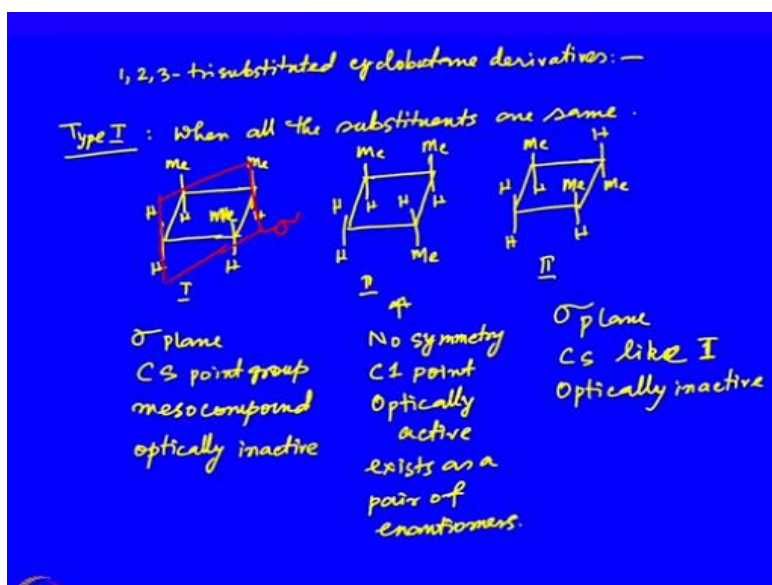 1,2,3- trisubstituted cyclobutane derivatives:—
Type I : When all the substituents are same.
Me Me
H H H
Me
H H
I
σ
Me Me
H H H H
H Me
II
H
H H Me Me
H H
III
σ plane
CS point group
mesocompound
optically inactive
No symmetry
C1 point
Optically
active
exists as a
pair of
enantiomers.
σ plane
CS like I
Optically inactive